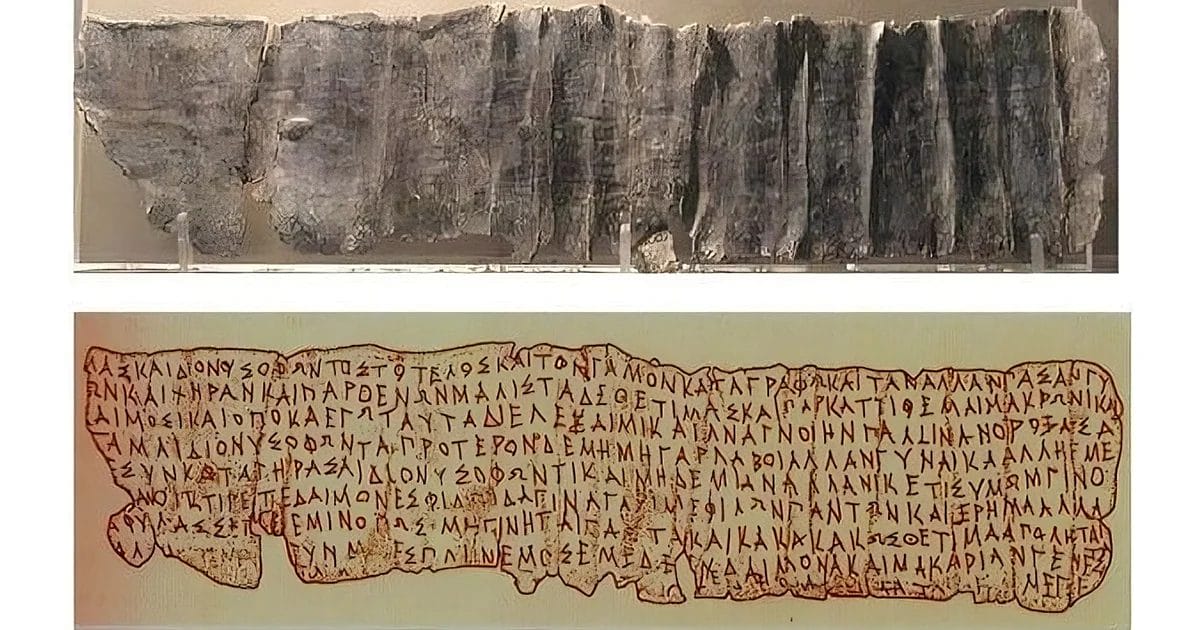 ΜΑΣΚΑΙΔΙΟΝΥΣΟΦΩΝΤΟΣΤΟΤΕΛΟΣΚΑΙΤΟΝΓΑΜΟΝΚΑΤΑΓΡΑΦΩΚΑΙΤΑΝΑΛΛΑΝΠΑΣΑΝΓΥ
ΩΝΚΑΙΧΗΡΑΝΚΑΙΠΑΡΘΕΝΩΝΜΑΛΙΣΤΑΔΕΘΕΤΙΜΑΣΚΑΙΠΑΡΚΑΤΤΙΘΕΜΑΙΜΑΚΡΩΝΙΚΑΙ
ΑΙΜΟΣΙΚΑΙΟΠΟΚΑΕΓΩΤΑΥΤΑΔΙΕΛΕΞΑΙΜΙΚΑΙΑΝΑΓΝΟΙΗΝΠΑΛΛΙΝΑΝΟΡΟΞΑΣΑ
ΓΑΜΑΙΔΙΟΝΥΣΟΦΩΝΤΑΠΡΟΤΕΡΟΝΔΕΜΗΜΗΓΑΡΛΑΒΟΙΑΛΛΑΝΓΥΝΑΙΚΑΑΛΛΗΕΜΕ
ΕΣΥΝΚΑΤΑΓΗΡΑΣΑΙΔΙΟΝΥΣΟΦΩΝΤΙΚΑΙΜΗΔΕΜΙΑΝΑΛΛΑΝΙΚΕΤΙΣΥΜΩΜΓΙΝΟ
ΑΝΟΙΚΤΙΡΕΤΕΔΑΙΜΟΝΕΣΦΙΛΟΙΔΑΓΙΝΑΓΑΡΙΜΕΦΙΛΩΝΠΑΝΤΩΝΚΑΙΕΡΗΜΑΑΛΛΑ
ΑΦΥΛΑΣΣΕΤΕΕΜΙΝΟΠΩΣΜΗΓΙΝΗΤΑΙΤΑΥΤΑΚΑΙΚΑΚΑΚΑΚΩΣΘΕΤΙΜΑΑΠΟΛΗΤΑΙ
ΑΛ ΥΝΜ ΕΣΠΛΗΝΕΜΟΣΕΜΕΔΕ ΝΕΔΑΙΜΟΝΑΚΑΙΜΑΚΑΡΙΑΝΓΕΝΕΣ